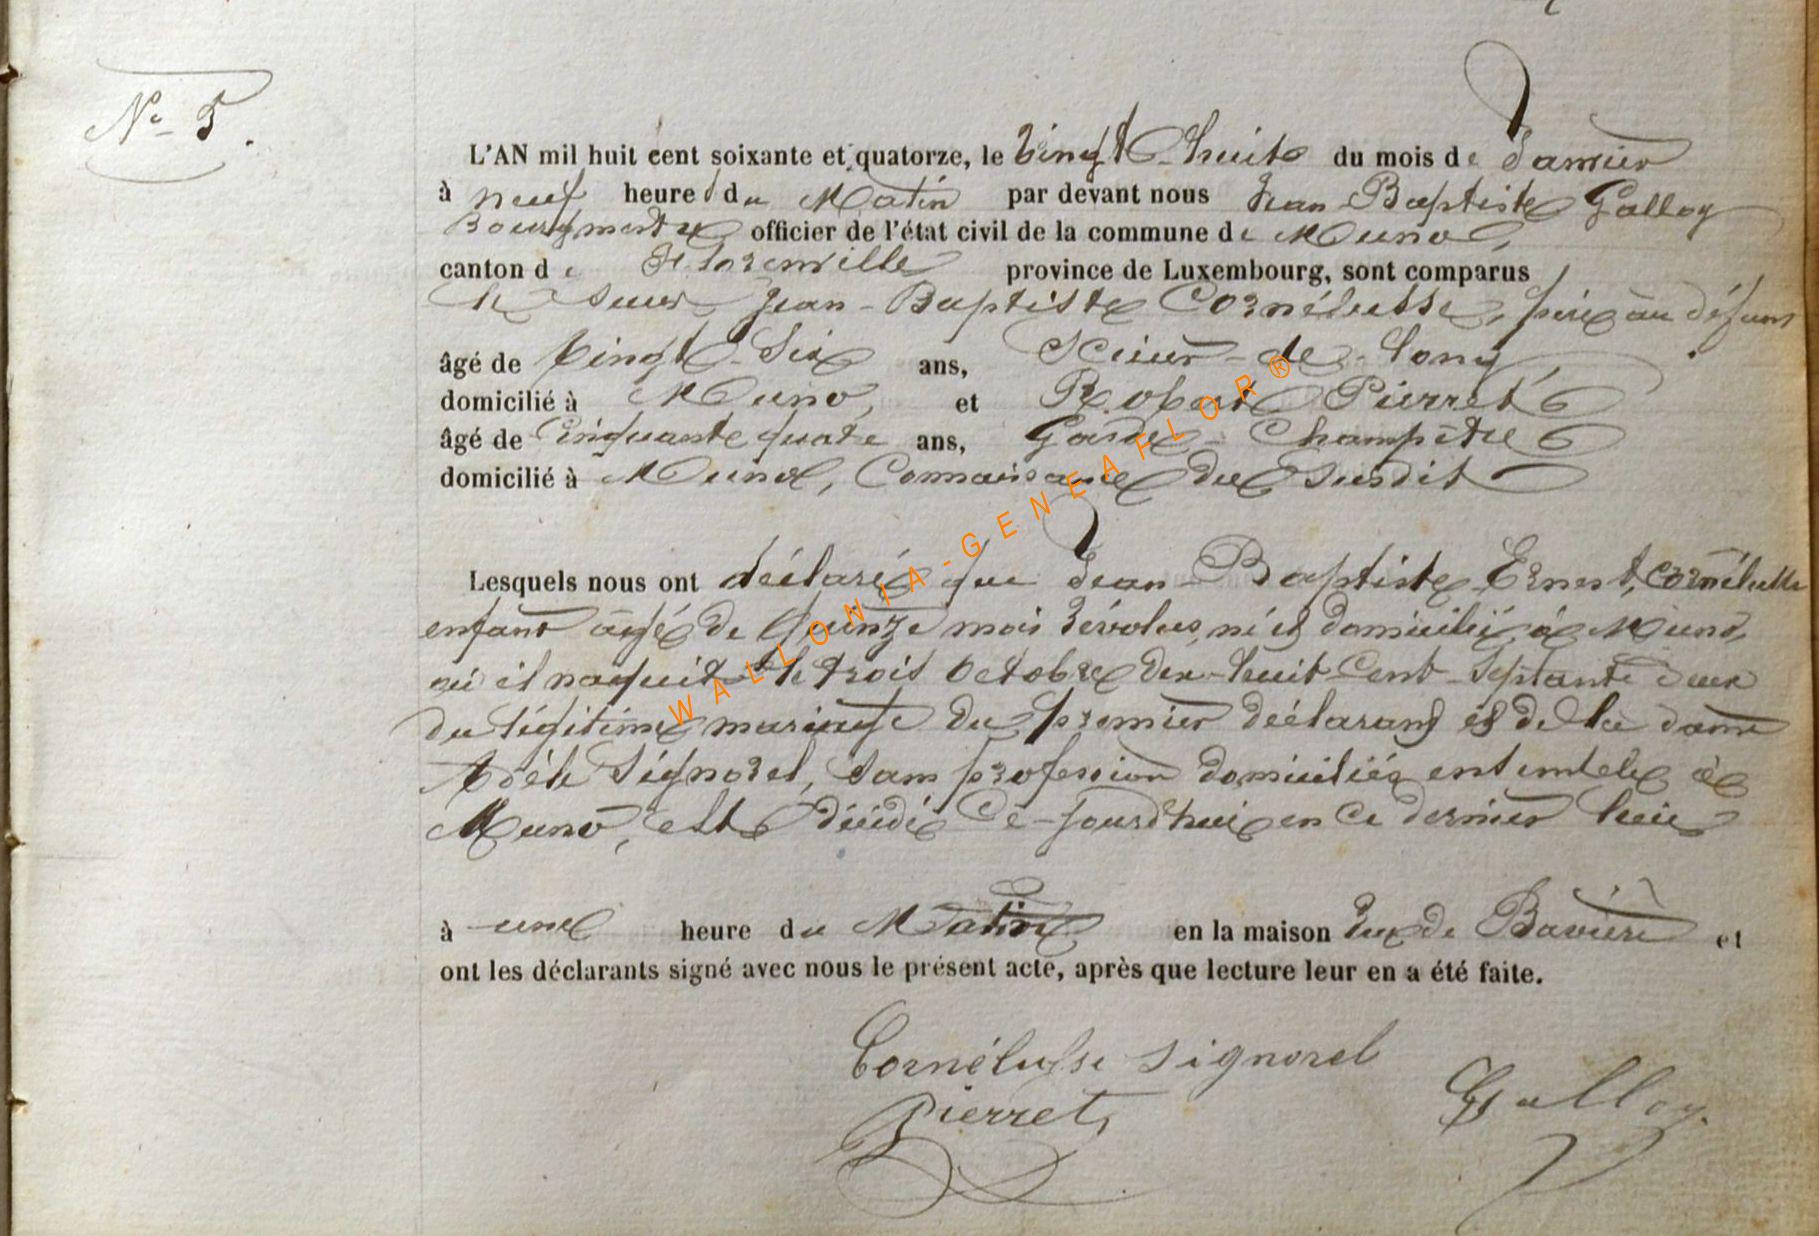 N° 5.
L'AN mil huit cent soixante et quatorze, le Vingt-huit du mois de Janvier
à neuf heures du Matin par devant nous Jean Baptiste Galloy
Bourgmestre officier de l'état civil de la commune de Muno,
canton de Florenville province de Luxembourg, sont comparus
le sieur Jean-Baptiste Cornélusse, père au défunt
âgé de Vingt-Six ans, Scieur-de-long,
domicilié à Muno, et Robert Pierret
âgé de Cinquante quatre ans, Garde-Champêtre
domicilié à Muno, Connaissance du Susdit
Lesquels nous ont déclaré que Jean Baptiste Ernest, Cornélusse
enfant âgé de Quinze mois révolus, né et domicilié à Muno,
où il naquit le trois Octobre dix-huit-Cent-Septante deux
du légitime mariage du premier déclarant et de la dame
Adèle Signorel, sans profession domiciliés ensemble à
Muno, est décédé Ce-jourd'hui en Ce dernier lieu
à une heure du Matin en la maison rue de Bavière et
ont les déclarants signé avec nous le présent acte, après que lecture leur en a été faite.
Cornélusse Signorel
Pierret Galloy.
WALLONIA-GENEAFLOR®